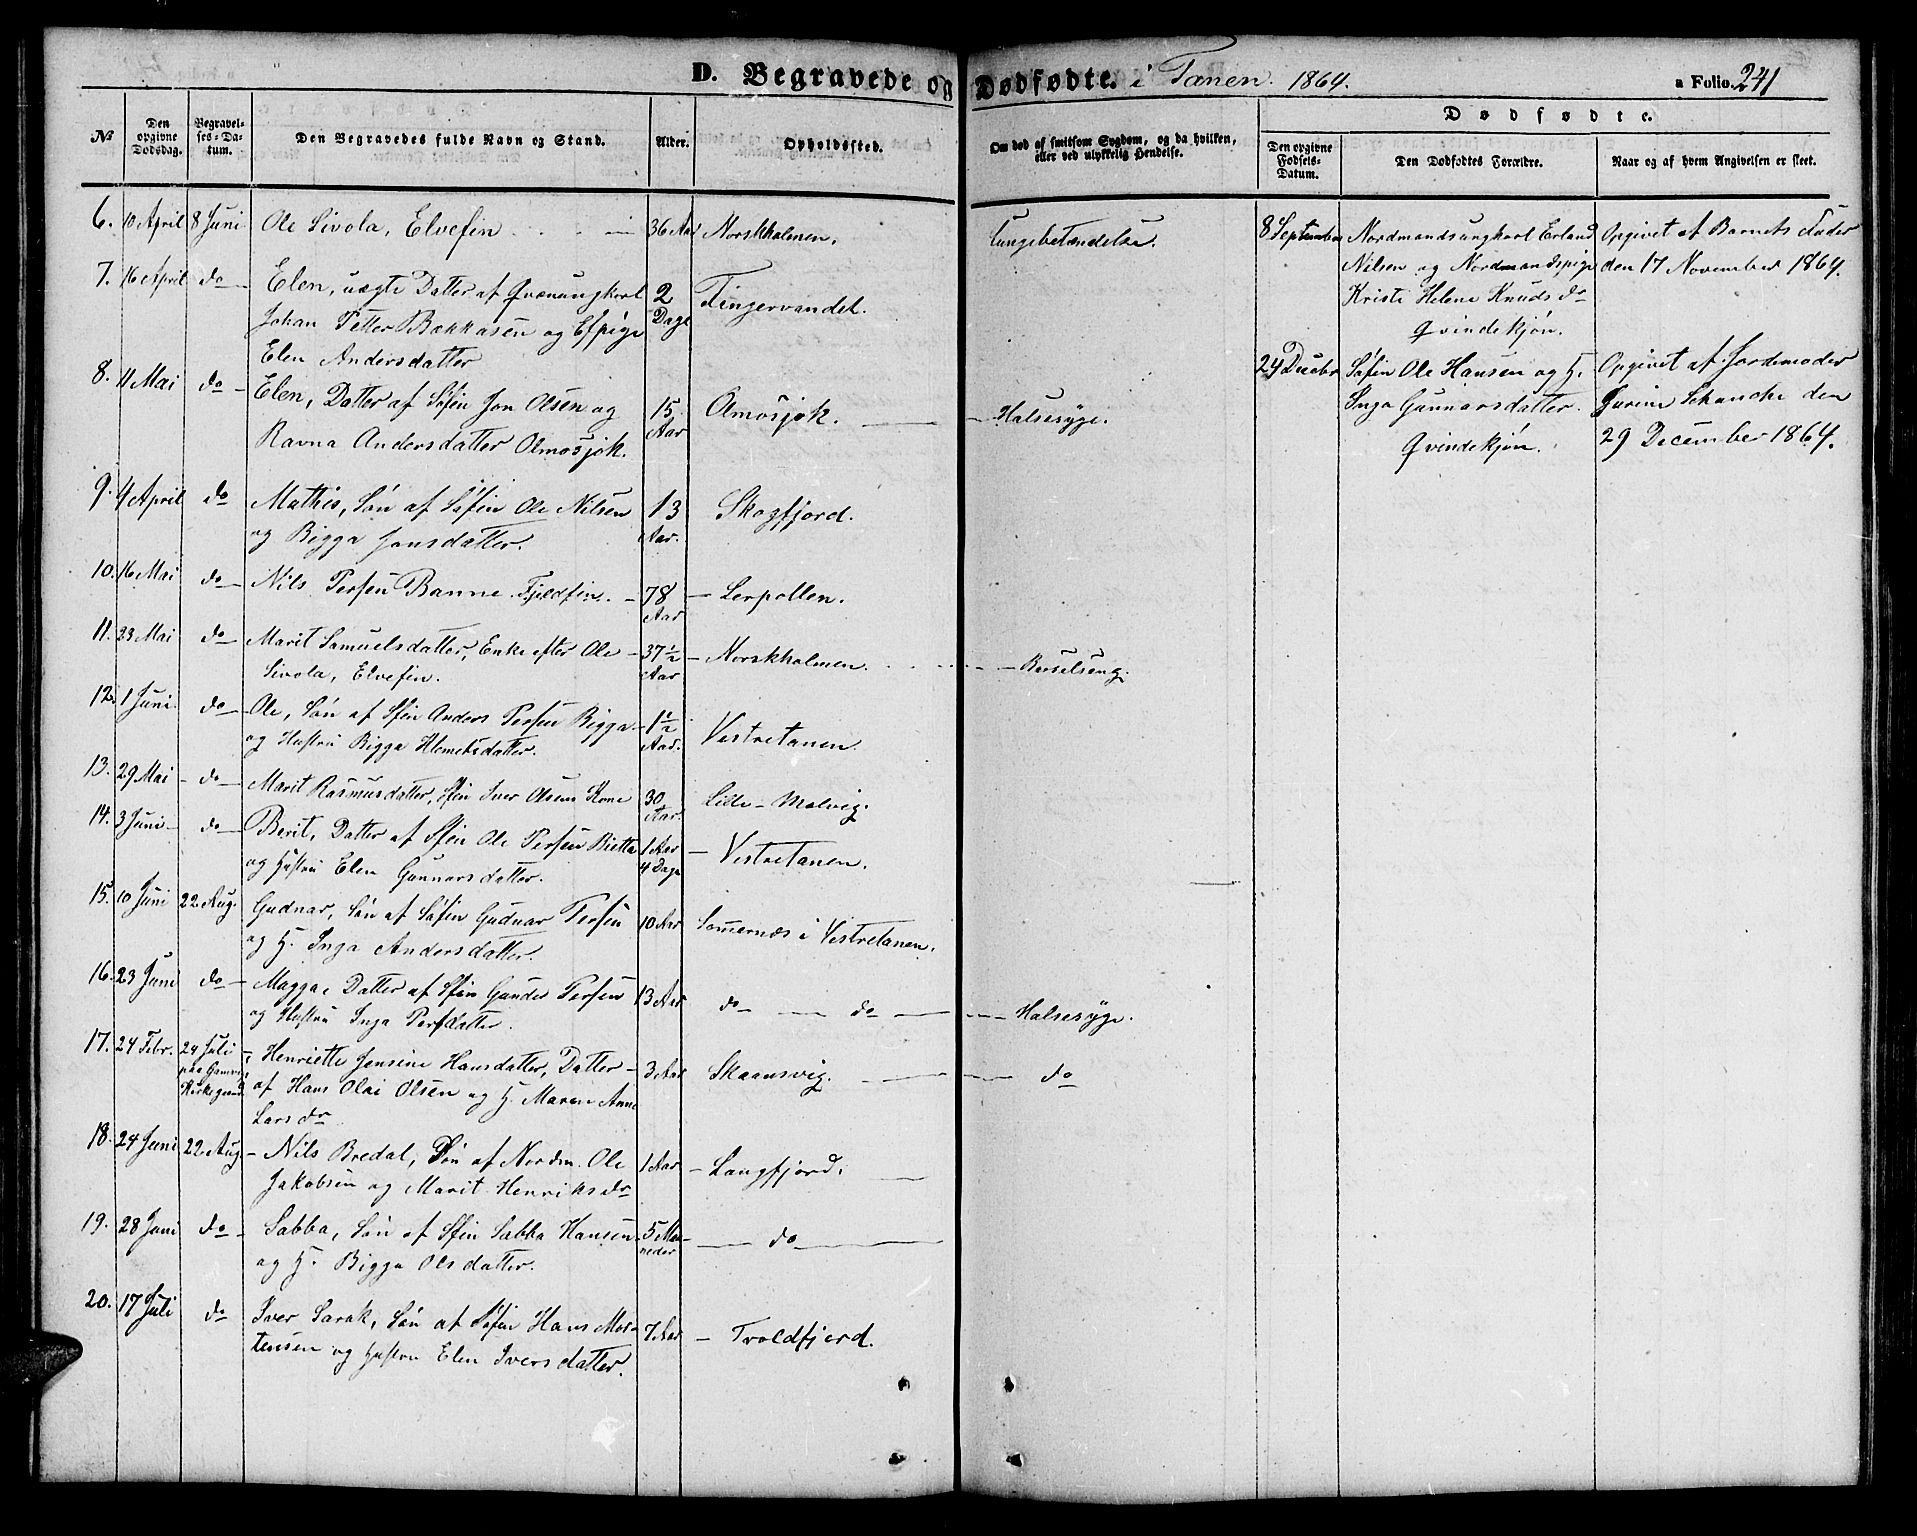 D. Begravede og Dødfødte. i Tanen. 1864. a Folio. 241
No
Den opgivne Dødsdag.
Begravelses-Datum.
Den Begravedes fulde Navn og Stand.
Alder.
Opholdssted.
Om død af smitsom Sygdom, og da hvilken,
eller ved ulykkelig Hendelse.
Dødfødte.
Den opgivne Fødsels-Datum.
Den Dødfødtes Forældre.
Naar og af hvem Angivelsen er skeet.
6. 10 April 8 Juni Ole Sivola, Elvefin 36 Aar Norskholmen. Lungebetændelse.
7. 16 April do Elen, uægte Datter af Qvænungkarl 2 Dage Fingervandet.
Johan Petter Bækkasen og Efpige
Elen Andersdatter
8. 11 Mai do Elen, Datter af Søfin Jon Olsen og 15 Aar Olmosjok. Halsesyge.
Ravna Andersdatter Olmosjok.
9. 4 April do Mathis, Søn af Søfin Ole Nilsen 13 Aar. Skogfjord.
og Bigga Jonsdatter.
10. 16 Mai do Nils Persen Banne Fjeldfin. 78 Aar Lerpollen.
11. 23 Mai do Marit Samuelsdatter, Enke efter Ole 37½ Aar Norskholmen. Barselseng.
Sivola, Elvefin.
12. 1 Juni do Ole, Søn af Sfin Anders Persen Bigga 1½ Aar. Vestretanen.
og Hustru Bigga Klemetsdatter.
13. 29 Mai do Marit Rasmusdatter, Sfin Iver Olsens Kone 30 Aar. Lille-Molvig.
14. 3 Juni do Berit, Datter af Sfin Ole Persen Bietta 1 Aar 4 Dage Vestretanen.
og Hustru Elen Gunnarsdatter.
15. 10 Juni 22 Aug. Gudnar, Søn af Søfin Gudnar Persen 10 Aar Somernæs i Vestretanen.
og H. Inga Andersdatter.
16. 23 Juni do Magga, Datter af Sfin Gunder Persen 13 Aar do do Halsesyge.
og Hustru Inga Persdatter.
17. 24 Febr. 24 Juli paa Gamvig Kirkegaard Henriette Jensine Hansdatter, Datter 3 Aar Skaansvig. do
af Hans Olai Olsen og H. Maren Anne
Larsdr
18. 24 Juni 22 Aug. Nils Bredal, Søn af Nordm. Ole 1 Aar Langfjord.
Jakobsen og Marit Henriksdr
19. 28 Juni do Sabba, Søn af Sfin Sabba Hansen 5 Maaneder do
og H. Bigga Olsdatter.
20. 17 Juli do Iver Sarak, Søn af Søfin Hans Mor- 7 Aar Troldfjord.
tensen og Hustru Elen Iversdatter.
8 September Nordmandsungkarl Erland Opgivet af Barnets Fader
Nilsen og Nordmandspige den 17 November 1864.
Kristi Helene Knudsdr
Qvindekjøn.
24 Decbr Søfin Ole Hansen og H. Opgivet af Jordmoder
Inga Gunnarsdatter. Jurine Schanche den
Qvindekjøn. 29 December 1864.